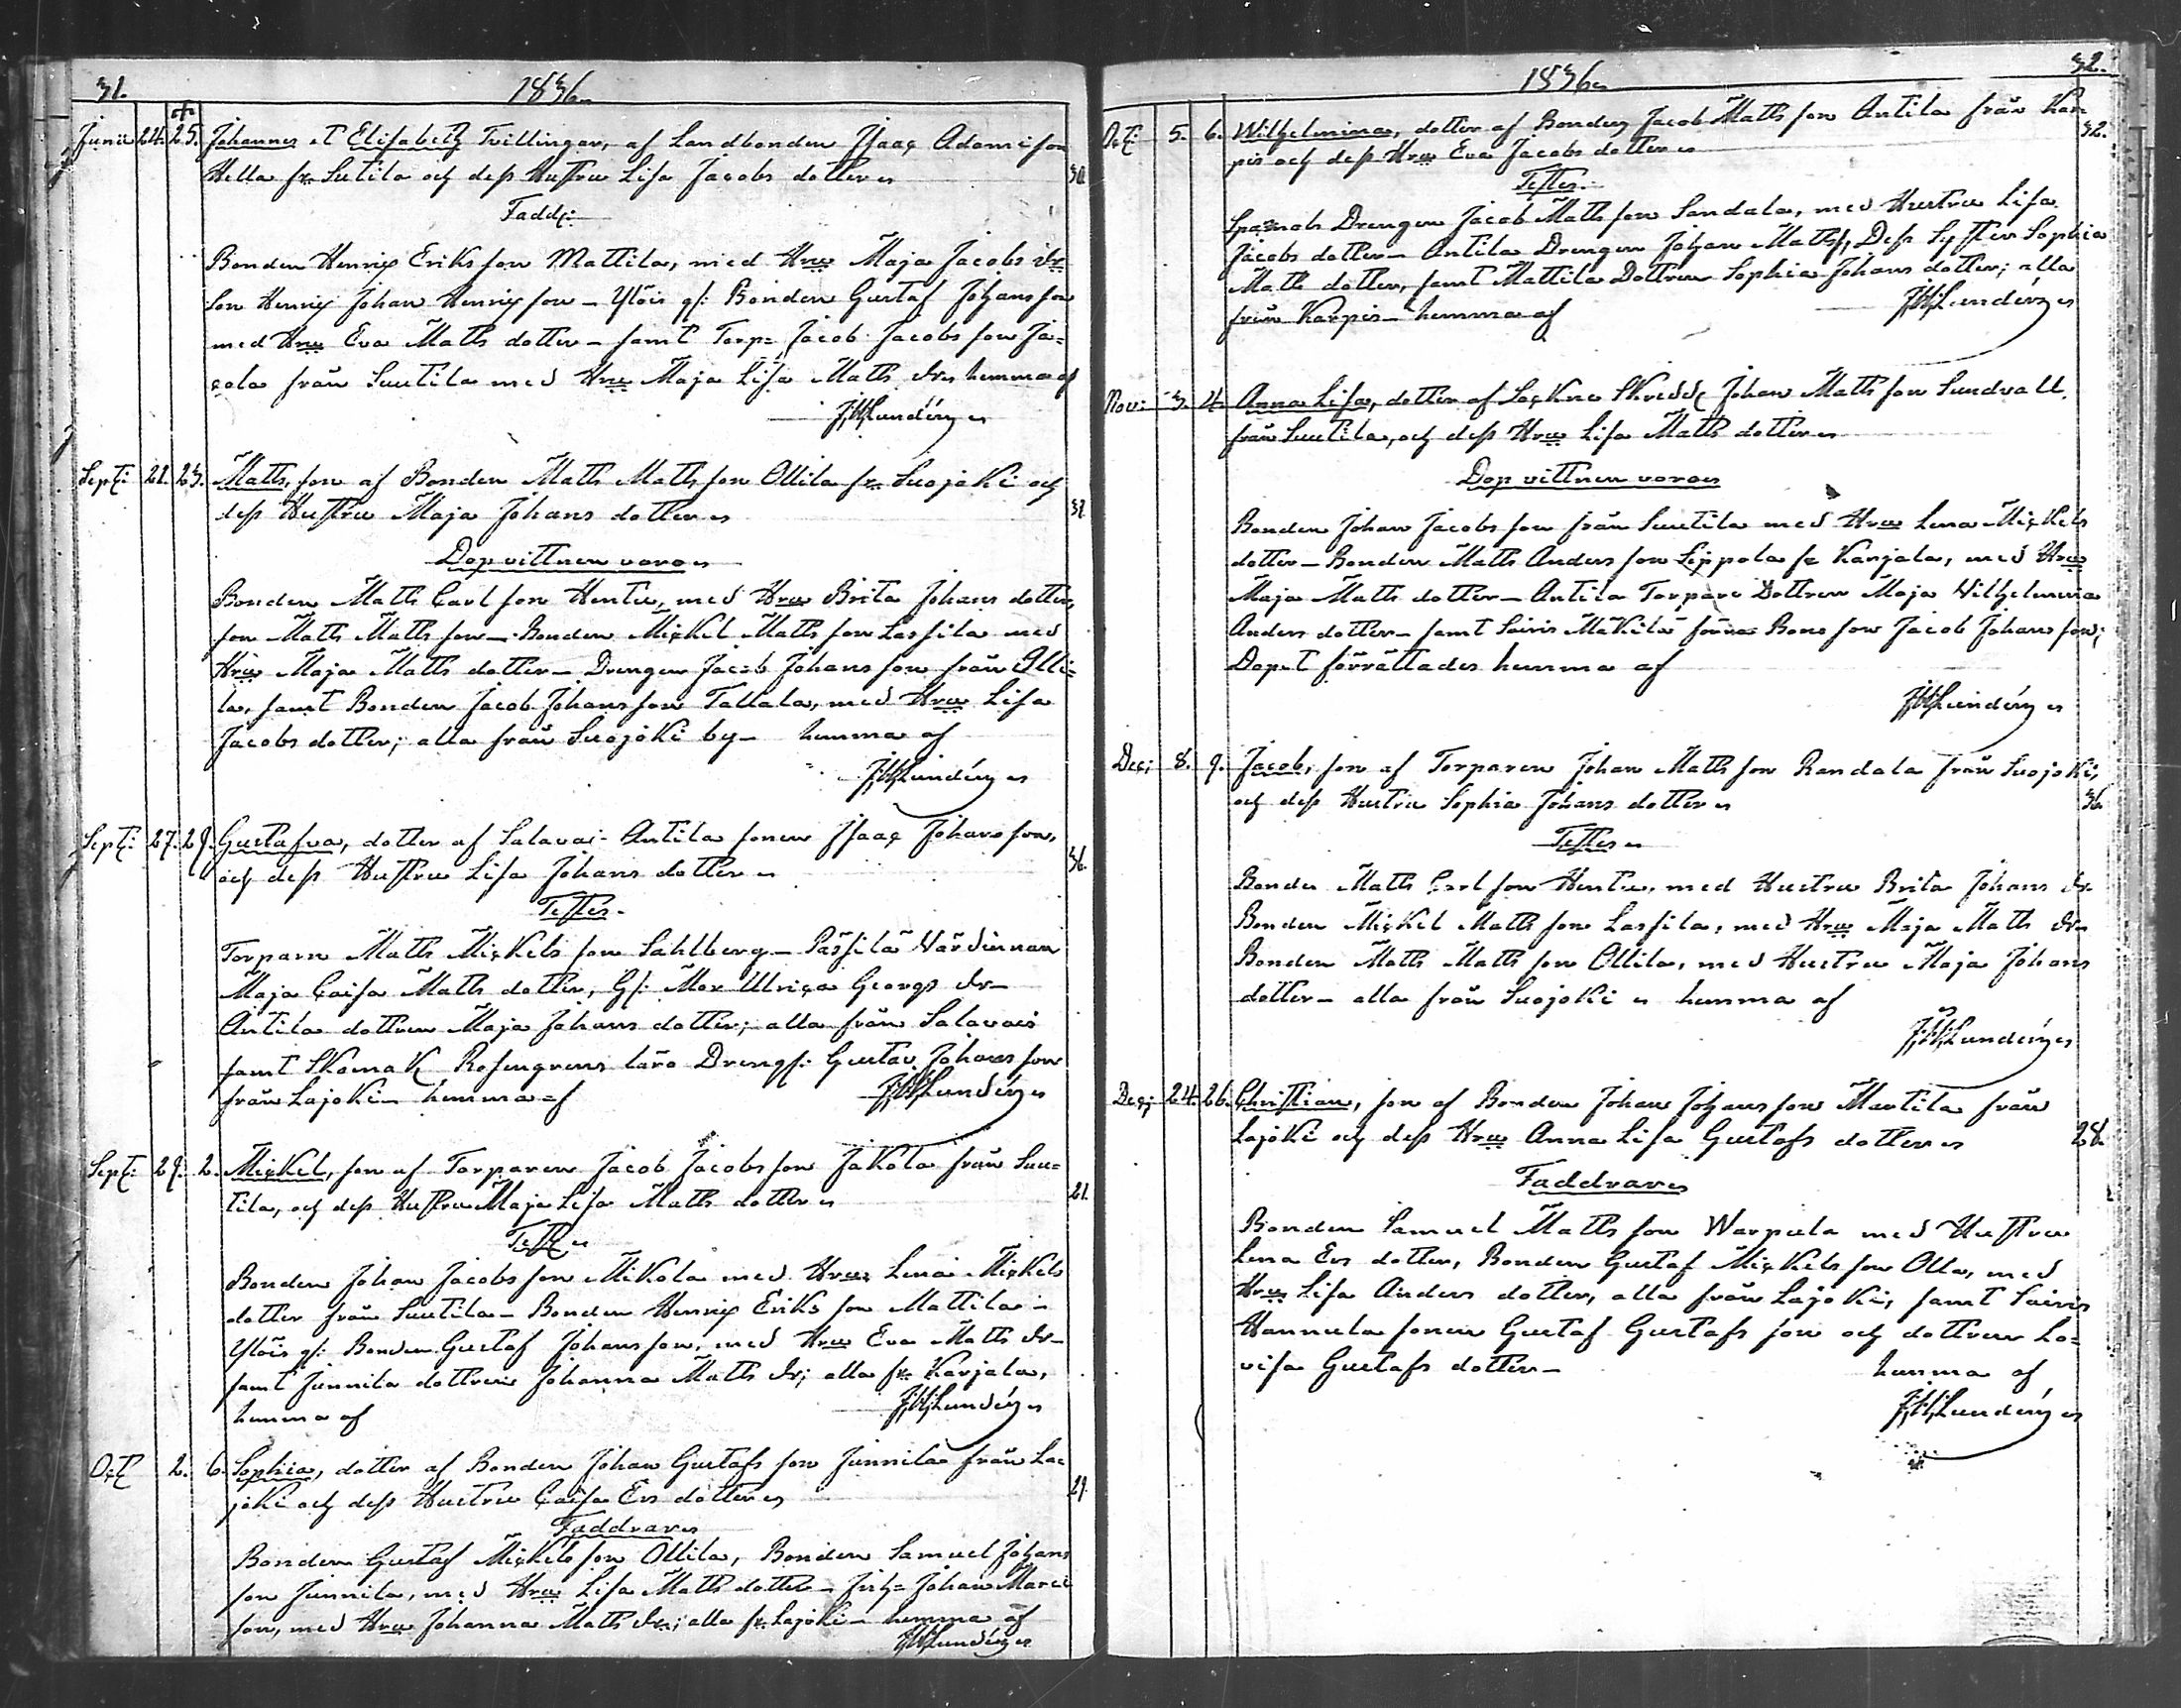 31.
1836.
Junii 24. 25. Johannes et Elisabeth Tvillingar, af Landbonden Isaac Adami son
Hella fr. Sutila och dess Hustru Lisa Jacobs dotter 30.
Fadd:
Bonden Henric Eriks son Mattila, med Hru Maja Jacobs dr
son Henric Johan Henricson – Ylöis gs: Bonden Gustaf Johansson
med Hru Eva Matts dotter – samt Torp= Jacob Jacobs son Ja=
cola från Suutila med Hru Maja Lisa Matts dr hemma af
Lundén
Sept: 21. 23. Matts, son af Bonden Matts Matts son Ollila fr. Suojoki och
dess Hustru Maja Johans dotter
Dop vittnen voro
Bonden Matts Carl son Hentu, med Hru Brita Johans dotter,
son Matts Matts son – Bonden Michel Matts son Lassila med
Hru Maja Matts dotter – Drengen Jacob Johans son från Olli=
la, samt Bonden Jacob Johansson Tallala, med Hru Lisa
Jacobs dotter; alla från Suojoki by – hemma af
Lundén
Sept: 27. 29. Gustafva, dotter af Salavai- Antila sonen Isaac Johansson,
och dess Hustru Lisa Johans dotter 36.
Testes.
Torparn Matts Mickels son Sahlberg – Pässilä Värdinnan
Maja Caisa Matts dotter, Gl: Mor Ulrica Georgs dr –
Antila dottren Maja Johans dotter; alla från Salavais
samt Skomak Rosengrens läro Drengs: Gustav Johans son
från Lajoki – hemma af Lundén
Sept: 29. 2. Mickel, son af Torparen Jacob Jacobs son Jakola från Suu=
tila, och dess Hustru Maja Lisa Matts dotter 21.
Test
Bonden Johan Jacobs son Mikola med Hru Lena Mickels
dotter från Suutila – Bonden Henric Eriks son Mattila –
Ylöis gs: Bonden Gustaf Johans son, med Hru Eva Matts dr –
samt Junnila dottren Johanna Matts dr; alla fr. Karjala,
hemma af Lundén
Oct 2. 6. Sophia, dotter af Bonden Johan Gustafs son Junnila från La=
joki och dess Hustru Caisa Ers dotter 29.
Faddrar
Bonden Gustaf Mickels son Ollila, Bonden Samuel Johans
son Junnila, med Hru Lisa Matts dotter – Johan
son, med Hru Johanna Matts dr; alla fr. Lajoki – hemma af
Lundén
32.
1836
Oct: 5. 6. Wilhelmina, dotter af Bonden Jacob Matts son Antila från Kar=
pis och dess Hru Eva Jacobs dotter 32.
Testes.
Drengen Jacob Matts son Sandala, med Hustru Lisa
Jacobs dotter – Antila Drengen Johan Matts, Dess Syster Sophia
Matts dotter, samt Mattila Dottren Sophia Johans dotter; alla
från Karpis – hemma af Lundén
Nov: 3. 4. Anna Lisa, dotter af Sockne Skredd Johan Matts son Sundvall
från Suutila, och dess Hru Lisa Matts dotter
Dop vittnen voro
Bonden Johan Jacobs son från Suutila med Hru Lena Mickels
dotter – Bonden Matts Anders son Seppola fr Karjala, med Hru
Maja Matts dotter – Antila Torpare Dottren Maja Wilhelmina
Anders dotter – samt Sairis Mäkilä Bonde son Jacob Johans son;
Dop=t förrättades hemma af
Lundén
Dec; 8. 9. Jacob, son af Torparen Johan Matts son Randala från Suojoki,
och dess Hustru Sophia Johans dotter 36.
Testes
Bonden Matts Carl son Hentu, med Hustru Brita Johans dr
Bonden Mickel Matts son Lassila, med Hru Maja Matts dr
Bonden Matts Matts son Ollila, med Hustru Maja Johans
dotter – alla från Suojoki hemma af
Lundén
Dec; 24. 26. Christian, son af Bonden Johan Johans son Martila från
Lajoki och dess Hru Anna Lisa Gustafs dotter 28.
Faddrar
Bonden Samuel Matts son Warpula med Hustru
Lena Ers dotter, Bonden Gustaf Mickels son Olla, med
Hru Lisa Anders dotter, alla från Lajoki, samt Sairis
Hannula sonen Gustaf Gustafs son och dottren Lo=
visa Gustafs dotter – hemma af
Lundén